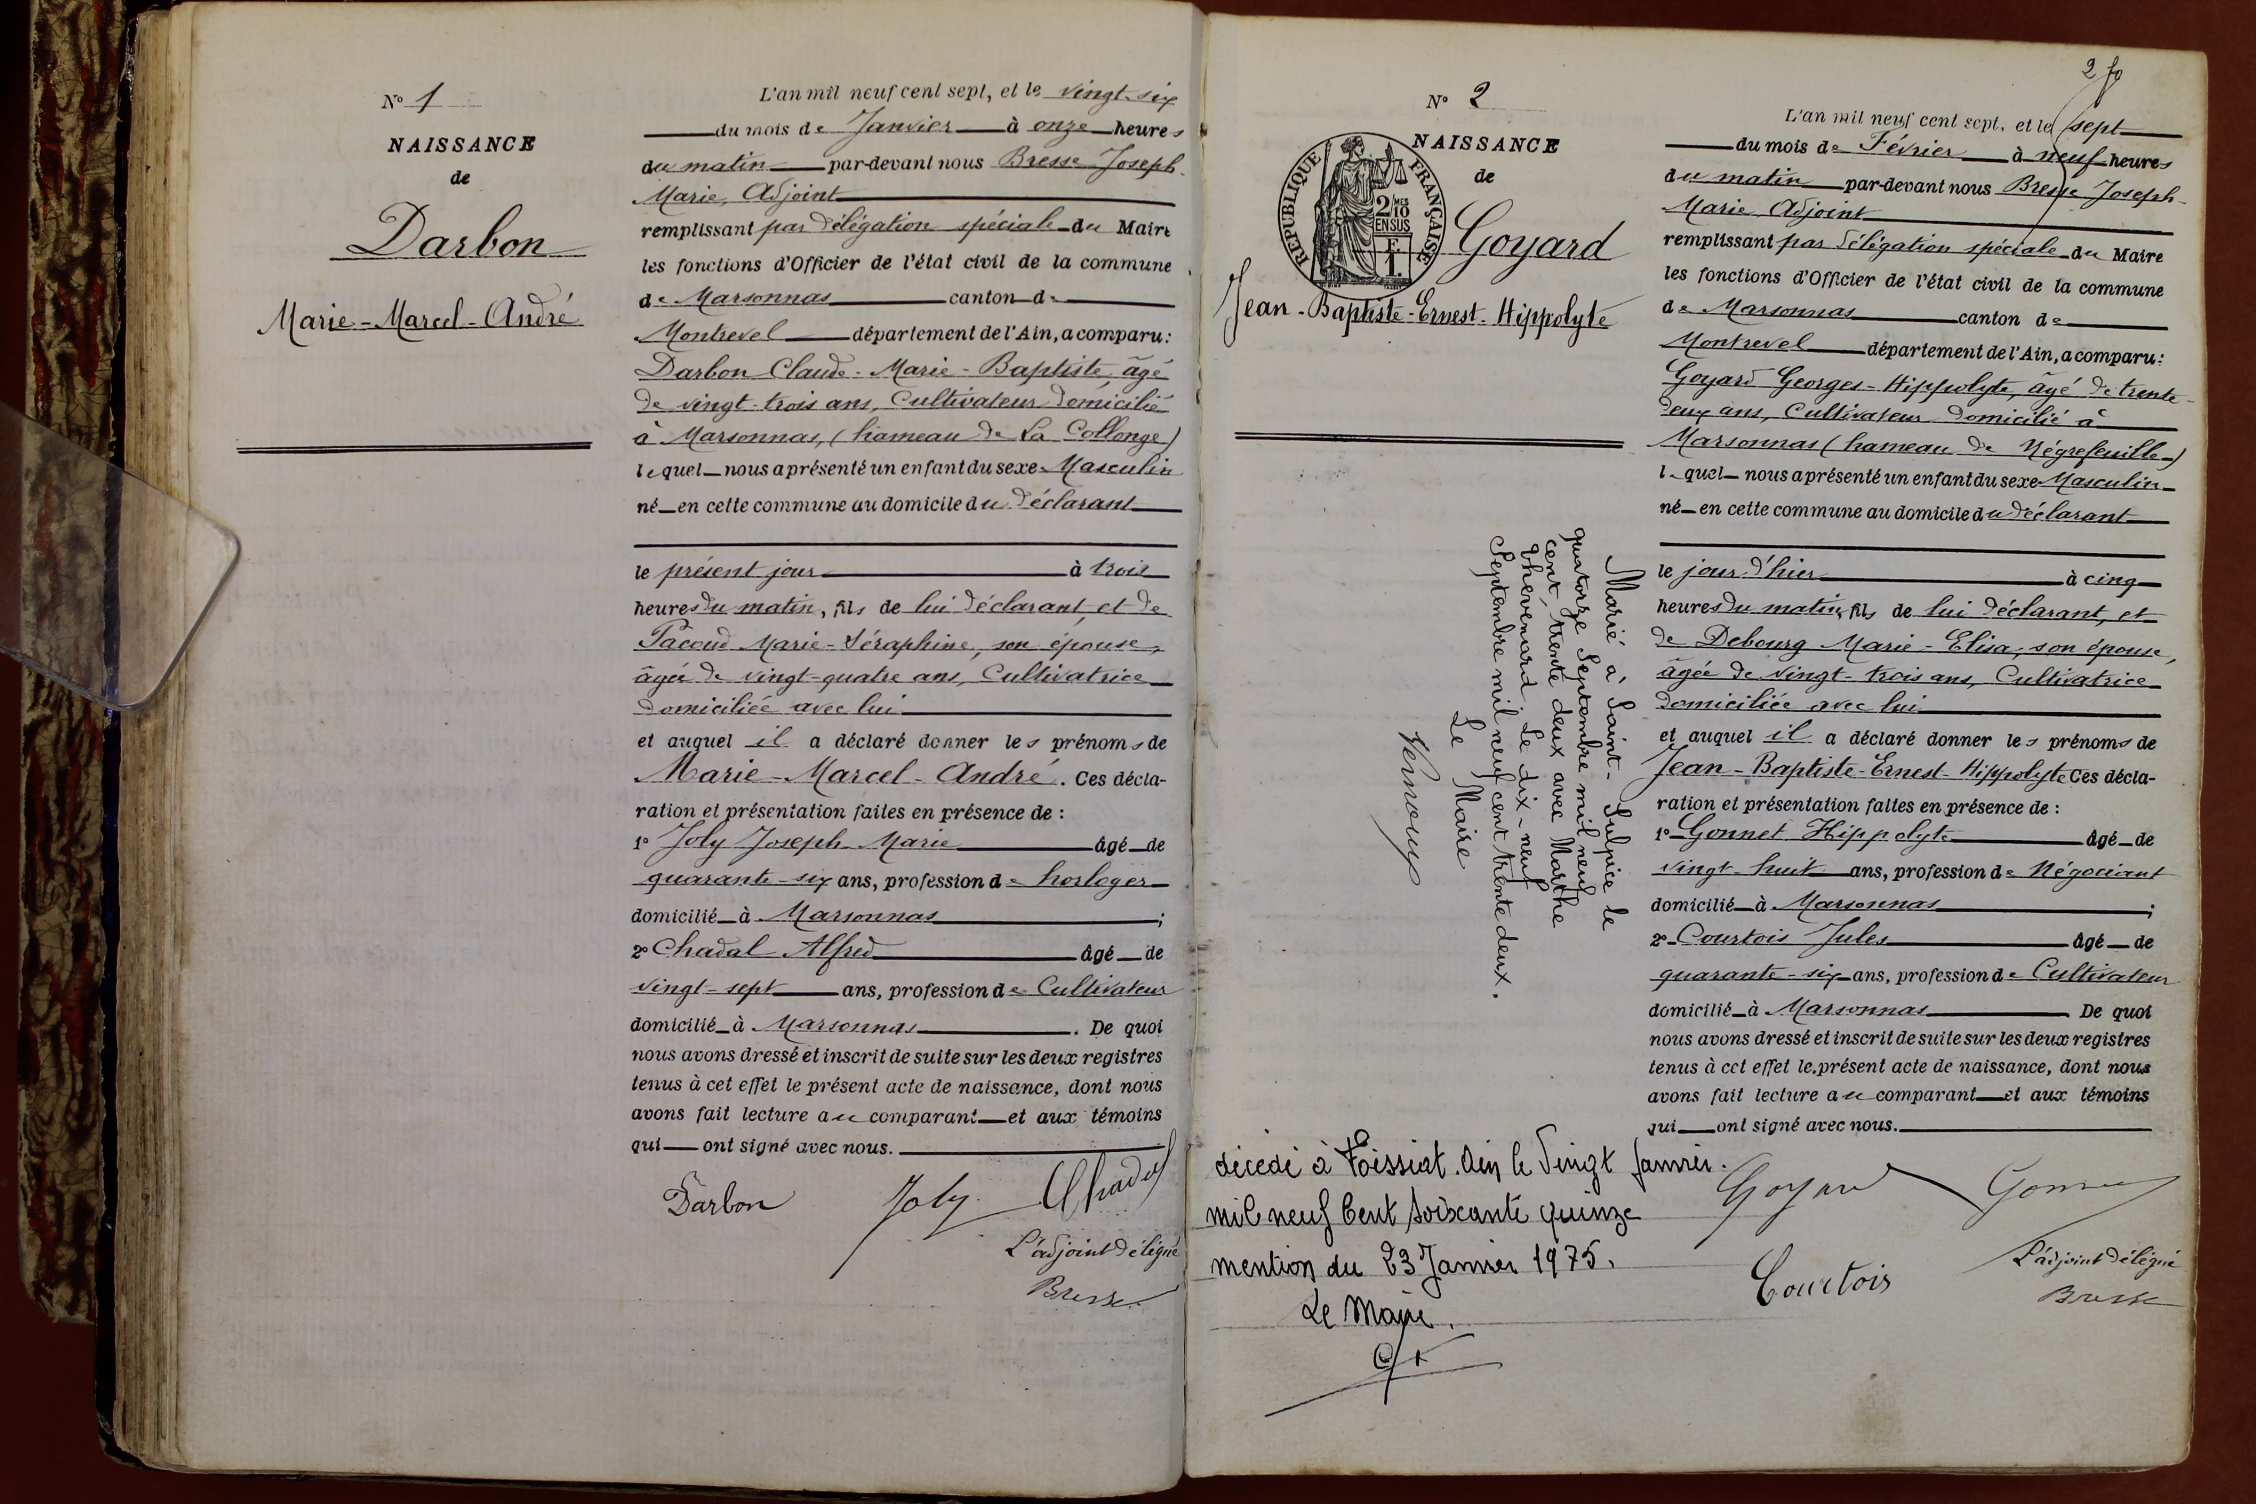 N° 1
NAISSANCE
de
Darbon
Marie-Marcel-André
L'an mil neuf cent sept, et le vingt-six
du mois de Janvier à onze heures
du matin par-devant nous Bresse Joseph-
Marie, Adjoint
remplissant par délégation spéciale du Maire
les fonctions d'Officier de l'état civil de la commune
de Marsonnas canton de
Montrevel département de l'Ain, a comparu:
Darbon Claude-Marie-Baptiste, âgé
de vingt-trois ans, Cultivateur domicilié
à Marsonnas, (hameau de La Collonge)
lequel nous a présenté un enfant du sexe Masculin
né en cette commune au domicile du déclarant
le présent jour à trois
heures du matin, fils de lui déclarant, et de
Pacoud Marie-Séraphine, son épouse,
âgée de vingt-quatre ans, Cultivatrice
domiciliée avec lui
et auquel il a déclaré donner les prénoms de
Marie-Marcel-André. Ces décla-
ration et présentation faites en présence de :
1° Joly Joseph-Marie âgé de
quarante-six ans, profession de horloger
domicilié à Marsonnas ;
2° Chadal Alfred âgé de
vingt-sept ans, profession de Cultivateur
domicilié à Marsonnas. De quoi
nous avons dressé et inscrit de suite sur les deux registres
tenus à cet effet le présent acte de naissance, dont nous
avons fait lecture au comparant et aux témoins
qui ont signé avec nous.
Darbon Joly Chadal
L'adjoint délégué
Bresse
2 fo
N° 2
NAISSANCE
de
REPUBLIQUE FRANÇAISE
2 MES
10
EN SUS
Goyard
Jean-Baptiste-Ernest-Hippolyte
L'an mil neuf cent sept, et le sept
du mois de Février à neuf heures
du matin par-devant nous Bresse Joseph-
Marie Adjoint
remplissant par délégation spéciale du Maire
les fonctions d'Officier de l'état civil de la commune
de Marsonnas canton de
Montrevel département de l'Ain, a comparu:
Goyard Georges-Hippolyte, âgé de trente-
deux ans, Cultivateur domicilié à
Marsonnas (hameau de Négrefeuille)
lequel nous a présenté un enfant du sexe Masculin
né en cette commune au domicile du déclarant
le jour d'hier à cinq
heures du matin, fils de lui déclarant, et
de Debourg Marie-Elisa, son épouse,
âgée de vingt-trois ans, Cultivatrice
domiciliée avec lui
et auquel il a déclaré donner les prénoms de
Jean-Baptiste-Ernest-Hippolyte Ces décla-
ration et présentation faites en présence de :
1° Gonnet Hippolyte âgé de
vingt-huit ans, profession de Négociant
domicilié à Marsonnas ;
2° Courtois Jules âgé de
quarante-six ans, profession de Cultivateur
domicilié à Marsonnas De quoi
nous avons dressé et inscrit de suite sur les deux registres
tenus à cet effet le présent acte de naissance, dont nous
avons fait lecture au comparant et aux témoins
qui ont signé avec nous.
Goyard Gonnet
Courtois
L'adjoint délégué
Bresse
Marié à Saint-Sulpice le
quatorze Septembre mil neuf
cent, trente deux avec Marthe
Thévenard. Le dix-neuf
Septembre mil neuf cent trente deux.
Le Maire
Vernoux
décédé à Foissiat. Ain le Vingt Janvier.
mil neuf Cent soixante quinze
mention du 23 Janvier 1975.
Le Maire.